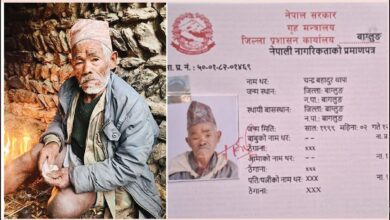 नेपाल सरकार
गृह मन्त्रालय
जिल्ला प्रशासन कार्यालय, बाग्लुङ
नेपाली नागरिकताको प्रमाणपत्र
प्र. नं. : ५०-०१-८२-०१४६१
नाम थर: चन्द्र बहादुर थापा
जन्म स्थान: जिल्ला: बाग्लुङ
न.पा.: बागलुङ
स्थायी बासस्थान: जिल्ला: बाग्लुङ
न.पा.: बागलुङ
जन्म मिति: साल: १९९९ महिना: ०२ गते
बाबुको नाम थर: --
ठेगाना: xxx
आमाको नाम थर: --
ठेगाना: xxx
पति/पत्नीको नाम थर: xxx
ठेगाना: XXX